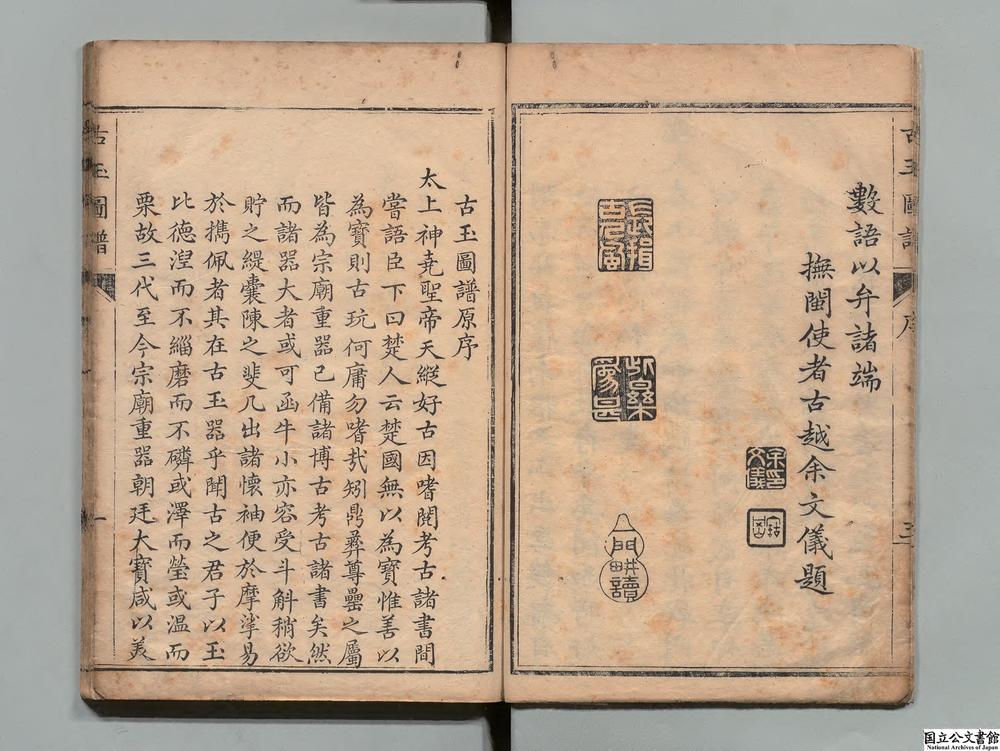 數語以弁諸端
撫閩使者古越余文儀題
序
三
古玉圖譜原序
太上神堯聖帝天縱好古因嗜閱考古諸書間
嘗語臣下曰楚人云楚國無以為寶惟善以
為寶則古玩何庸勿嗜㢤矧鼎彝尊罍之屬
皆為宗廟重器已備諸博古考古諸書矣然
而諸器大者或可函牛小亦容受斗斛稍欲
貯之緹囊陳之斐几出諸懷袖便於摩挲易
於擕佩者其在古玉器乎聞古之君子以玉
比德湼而不緇磨而不磷或澤而瑩或温而
栗故三代至今宗廟重器朝廷大寶咸以美
古玉圖譜
一
国立公文書館
National Archives of Japan